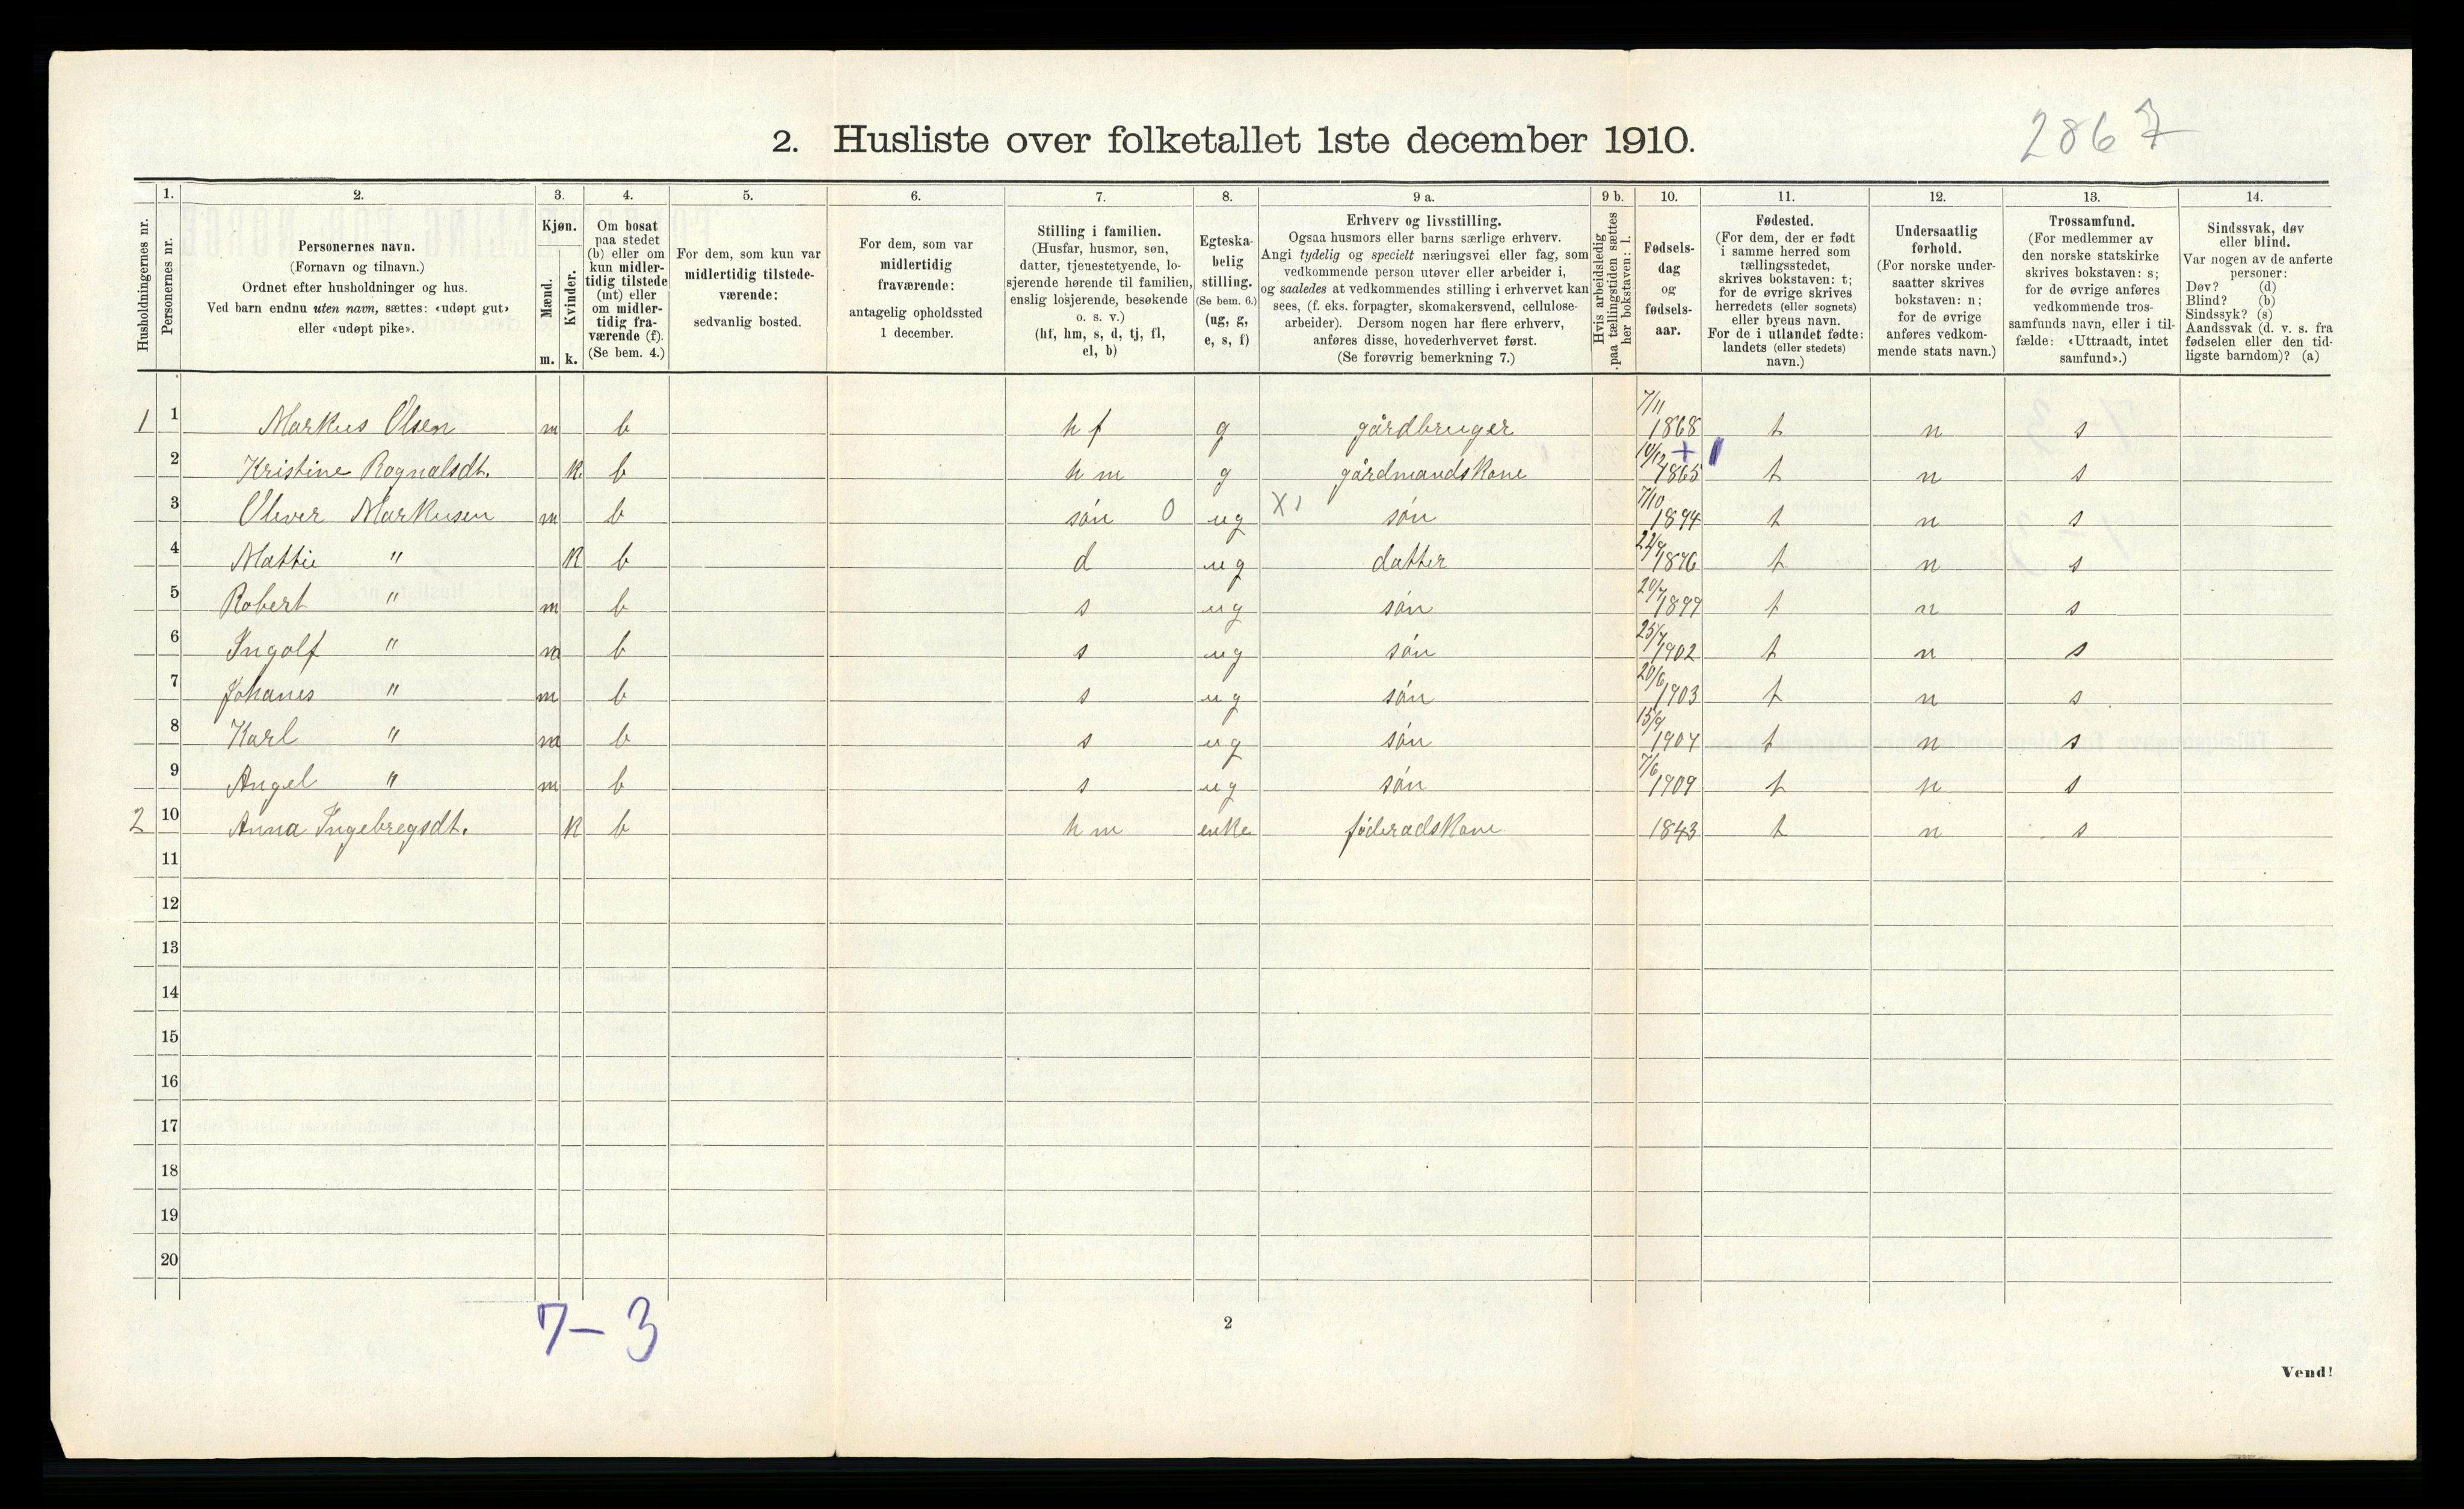 2867
2. Husliste over folketallet 1ste december 1910.
Husholdningernes nr.
1. Personernes nr.
2. Personernes navn. (Fornavn og tilnavn.) Ordnet efter husholdninger og hus. Ved barn endnu uten navn, sættes: «udøpt gut» eller «udøpt pike».
3. Kjøn. Mænd. m. Kvinder. k.
4. Om bosat paa stedet (b) eller om kun midlertidig tilstede (mt) eller om midlertidig fraværende (f). (Se bem. 4.)
5. For dem, som kun var midlertidig tilstedeværende: sedvanlig bosted.
6. For dem, som var midlertidig fraværende: antagelig opholdssted 1 december.
7. Stilling i familien. (Husfar, husmor, søn, datter, tjenestetyende, losjerende hørende til familien, enslig losjerende, besøkende o. s. v.) (hf, hm, s, d, tj, fl, el, b)
8. Egteskabelig stilling. (Se bem. 6.) (ug, g, e, s, f)
9 a. Erhverv og livsstilling. Ogsaa husmors eller barns særlige erhverv. Angi tydelig og specielt næringsvei eller fag, som vedkommende person utøver eller arbeider i, og saaledes at vedkommendes stilling i erhvervet kan sees, (f. eks. forpagter, skomakersvend, cellulosearbeider). Dersom nogen har flere erhverv, anføres disse, hovederhvervet først. (Se forøvrig bemerkning 7.)
9 b. Hvis arbeidsledig paa tællingstiden sættes her bokstaven: l.
10. Fødselsdag og fødselsaar.
11. Fødested. (For dem, der er født i samme herred som tællingsstedet, skrives bokstaven: t; for de øvrige skrives herredets (eller sognets) eller byens navn. For de i utlandet fødte: landets (eller stedets) navn.)
12. Undersaatlig forhold. (For norske undersaatter skrives bokstaven: n; for de øvrige anføres vedkommende stats navn.)
13. Trossamfund. (For medlemmer av den norske statskirke skrives bokstaven: s; for de øvrige anføres vedkommende trossamfunds navn, eller i tilfælde: «Uttraadt, intet samfund».)
14. Sindssvak, døv eller blind. Var nogen av de anførte personer: Døv? (d) Blind? (b) Sindssyk? (s) Aandssvak (d. v. s. fra fødselen eller den tidligste barndom)? (a)
1 1 Markus Olsen m b hf g gårdbruger 7/11 1868 t n s
2 Kristine Rognalsdt. k b hm g gårdmandskone 14/12 1865 + t n s
3 Olever Markusen m b søn 0 ug X 1 søn 7/10 1894 t n s
4 Mattie " k b d ug datter 1896 t n s
5 Robert " m b s ug søn 1899 t n s
6 Ingolf " m b s ug søn 1902 t n s
7 Johanes " m b s ug søn 20/6 1903 t n s
8 Karl " m b s ug søn 1907 t n s
9 Angel " m b s ug søn 7/6 1909 t n s
2 10 Anna Ingebregsdt. k b hm enke føderadskone 1843 t n s
11
12
13
14
15
16
17
18
19
20
7 – 3
2
Vend!